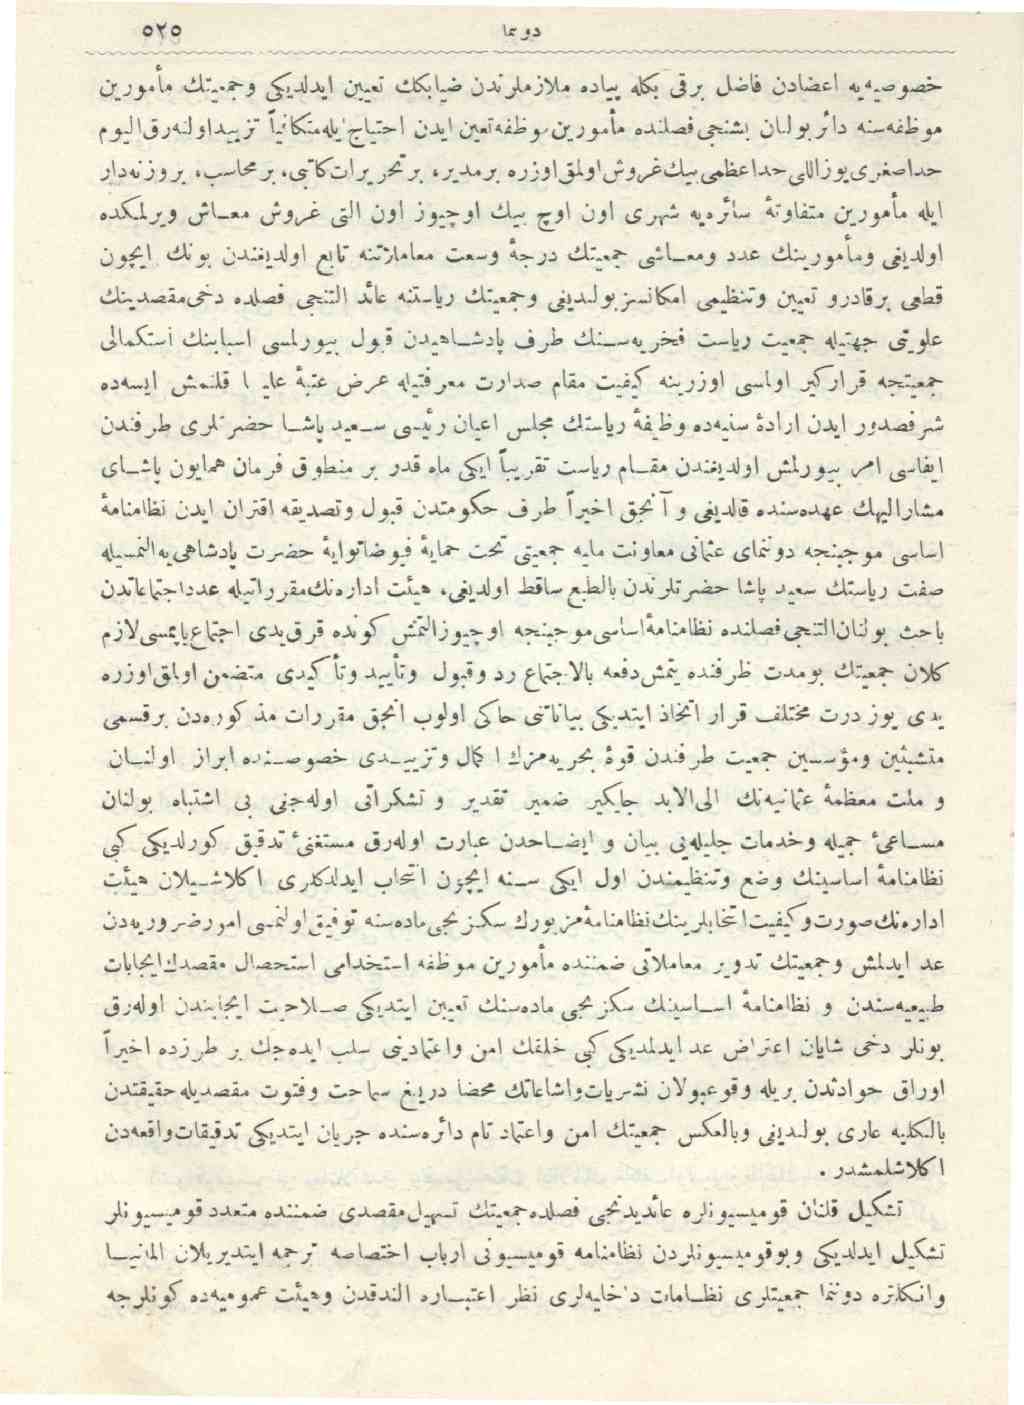 دونما ٥٢٥
خصوصیه‌یه اعضادن فاضل برقی بكله پیاده ملازملرندن ضیابكك تعیین ایدلدیكی وجمعیتك مأمورین
موظفه‌سنه دائربولنان بشنجی‌فصلنده مأمورین‌موظفه‌تعین ایدن احتیاج‌ایله‌متكافیاً تزییداولنه‌رق‌الیوم
حداصغری‌یوزاللی حداعظمی‌بیك‌غروش‌اولمق‌اوزره برمدیر، بر تحریرات‌كاتبی، بر محاسب، بروزنه‌دار
ایله مأمورین متفاوتهٔ سائره‌یه شهری اون اوچ بیك اوچیوز اون التی غروش معـاش ویرلمكده
اولدیغی ومأمورینك عدد ومعـاشی جمعیتك درجهٔ وسعت معاملاتنه تابع اولدیغندن بونك ایچون
قطعی برقادرو تعیین وتنظیمی امكانسزبولندیغی وجمعیتك ریاستنه عائد التنجی فصلده دخی‌مقصدینك
علویتی جهتیله جمعیت ریاست فخریه‌سـنك طرف پادشـاهیدن قبول بیورلمسی اسبابنك استكمالی
جمعیتجه قرارگیر اولمسی اوزرینه كیفیت مقام صدارت معرفتیله عرض عتبهٔ علیا قلنمش ایسه‌ده
شرفصدور ایدن ارادهٔ سنیه‌ده وظیفهٔ ریاستك مجلس اعیان رئیسی سـعید پاشـا حضرتلری طرفندن
ایفاسی امر بیورلمش اولدیغندن مقـام ریاست تقریباً ایكی ماه قدر بر منطوق فرمان همایون پاشـای
مشارالیهك عهده‌سنده قالدیغی و آنجق اخیراً طرف حكومتدن قبول وتصدیقه اقتران ایدن نظامنامهٔ
اساسی موجبنجه دوننمای عثمانی معاونت ملیه جمعیتی تحت حمایهٔ فیوضاتوایهٔ حضرت پادشاهی‌یه‌النمسیله
صفت ریاستك سعید پاشا حضرتلرندن بالطبع ساقط اولدیغی، هیئت اداره‌نك‌مقرراتیله عدداجتماعاتدن
باحث بولنان‌التنجی‌فصلنده نظامنامهٔاساسی‌موجبنجه اوچیوزالتمش كونده قرق‌یدی اجتماع‌یاپمسی‌لازم
كلان جمعیتك بومدت ظرفنده یتمش‌دفعه بالاجتماع رد وقبول وتأیید وتأكیدی متضمن اولمق‌اوزره
یدی یوز درت مختلف قرار اتخاذ ایتدیكی بیاناتنی حاكی اولوب انجق مقررات مذكوره‌دن برقسمی
متشبثین ومؤسسین جمعیت طرفندن قوهٔ بحریه‌مزك اكمال وتزییـدی خصوصـنده ابراز اولنـان
و ملت معظمهٔ عثمانیه‌نك الی‌الابد جایگیر ضمیر تقدیر و تشكراتی اوله‌جغی بی اشتباه بولنان
مسـاعیٔ جمیله وخدمات جلیله‌یی بیان و ایضـاحدن عبارت اوله‌رق مستغنیٔ تدقیق كورلدیكی كبی
نظامنامهٔ اساسینك وضع وتنظیمندن اول ایكی سـنه ایچون انتخاب ایدلدكلری اكلاشـیلان هیئت
اداره‌نك‌صورت‌وكیفیت‌انتخابلرینك‌نظامنامهٔ‌مزبورك سكزنجی‌ماده‌سنه توفیق‌اولنمسی امورضروریه‌دن
عد ایدلمش وجمعیتك تدویر معاملاتی ضمننده مأمورین موظفه استخدامی استحصال مقصدك‌ایجابات
طبیعیه‌سندن و نظامنامهٔ اسـاسینك سكزنجی ماده‌سنك تعیین ایتدیكی صـلاحیت ایجابندن اوله‌رق
بونلر دخی شایان اعتراض عد ایدلمدیكی كبی خلقك امن واعتمادینی سلب ایده‌جك بر طرزده اخیراً
اوراق حوادثدن بریله وقوعبولان نشریات‌واشاعاتك محضا دریغ سماحت وفتوت مقصدیله‌حقیقتدن
بالكلیه عاری بولندیغی وبالعكس جمعیتك امن واعتماد تام دائره‌سنده جریان ایتدیكی تدقیقات‌واقعه‌دن
اكلاشلمشدر .
تشكیل قلنان قومیسیونلره عائدیدنجی فصلده‌جمعیتك تسهیل‌مقصدی ضمننده متعدد قومیسیونلر
تشكیل ایدلدیكی وبوقومیسیونلردن نظامنامه قومیسیونی ارباب اختصاصه ترجمه ایتدیریلان المانیـا
وانكلتره دوننما جمعیتلری نظـامات داخلیه‌لری نظر اعتبـاره الندقدن وهیئت عمومیه‌ده كونلرجه